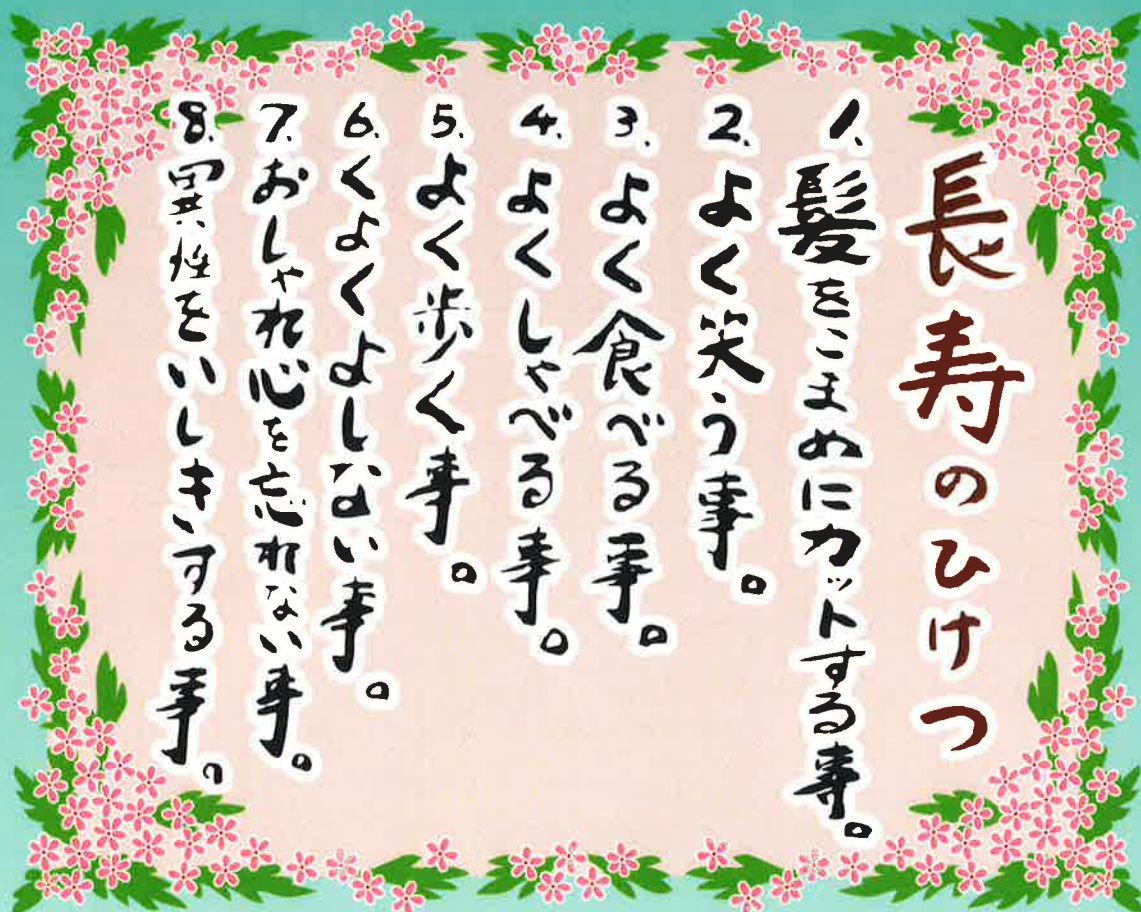 長寿のひけつ
1.髪をこまめにカットする事。
2.よく笑う事。
3.よく食べる事。
4.よくしゃべる事。
5.よく歩く事。
6.くよくよしない事。
7.おしゃれ心を忘れない事。
8.異性をいしきする事。